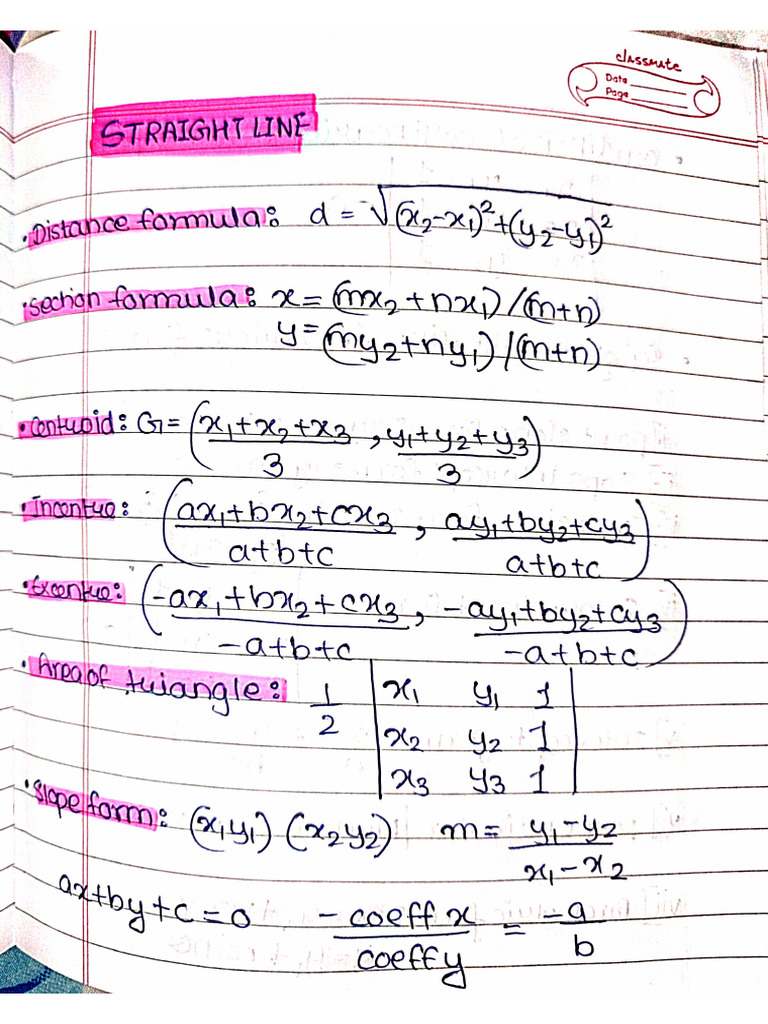 classmate
Date
Page
STRAIGHT LINE
• Distance formula: d = √(x₂-x₁)²+(y₂-y₁)²
• Section formula: x = (mx₂+nx₁)/(m+n)
y = (my₂+ny₁)/(m+n)
• Centroid: G = (x₁+x₂+x₃/3, y₁+y₂+y₃/3)
• Incentre: (ax₁+bx₂+cx₃/a+b+c, ay₁+by₂+cy₃/a+b+c)
• Excentre: (-ax₁+bx₂+cx₃/-a+b+c, -ay₁+by₂+cy₃/-a+b+c)
• Area of triangle: 1/2 | x₁ y₁ 1 |
| x₂ y₂ 1 |
| x₃ y₃ 1 |
• Slope form: (x₁y₁) (x₂y₂) m = y₁-y₂/x₁-x₂
ax+by+c=0 -coeff x/coeff y = -a/b